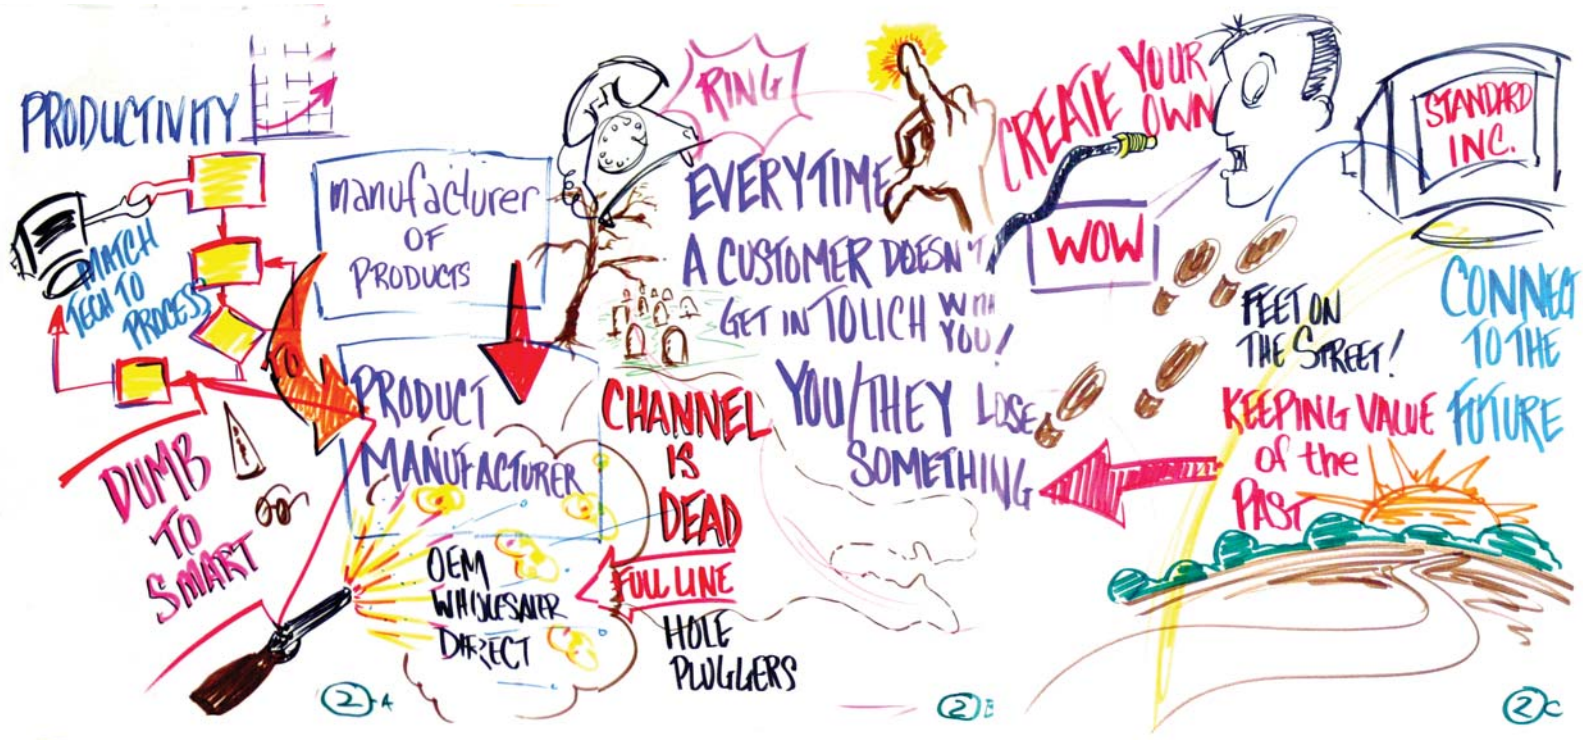 PRODUCTIVITY
MATCH
TECH TO
PROCESS
manufacturer
OF
PRODUCTS
PRODUCT
MANUFACTURER
DUMB
TO
SMART
OEM
WHOLESALER
DIRECT
2-A
RING
EVERYTIME
A CUSTOMER DOESN'T
GET IN TOUCH WITH
YOU!
YOU/THEY LOSE
SOMETHING
CHANNEL
IS
DEAD
FULL LINE
HOLE
PLUGGERS
2 B
CREATE YOUR
OWN
WOW
STANDARD
INC.
FEET ON
THE STREET!
CONNECT
TO THE
FUTURE
KEEPING VALUE
of the
PAST
2 C